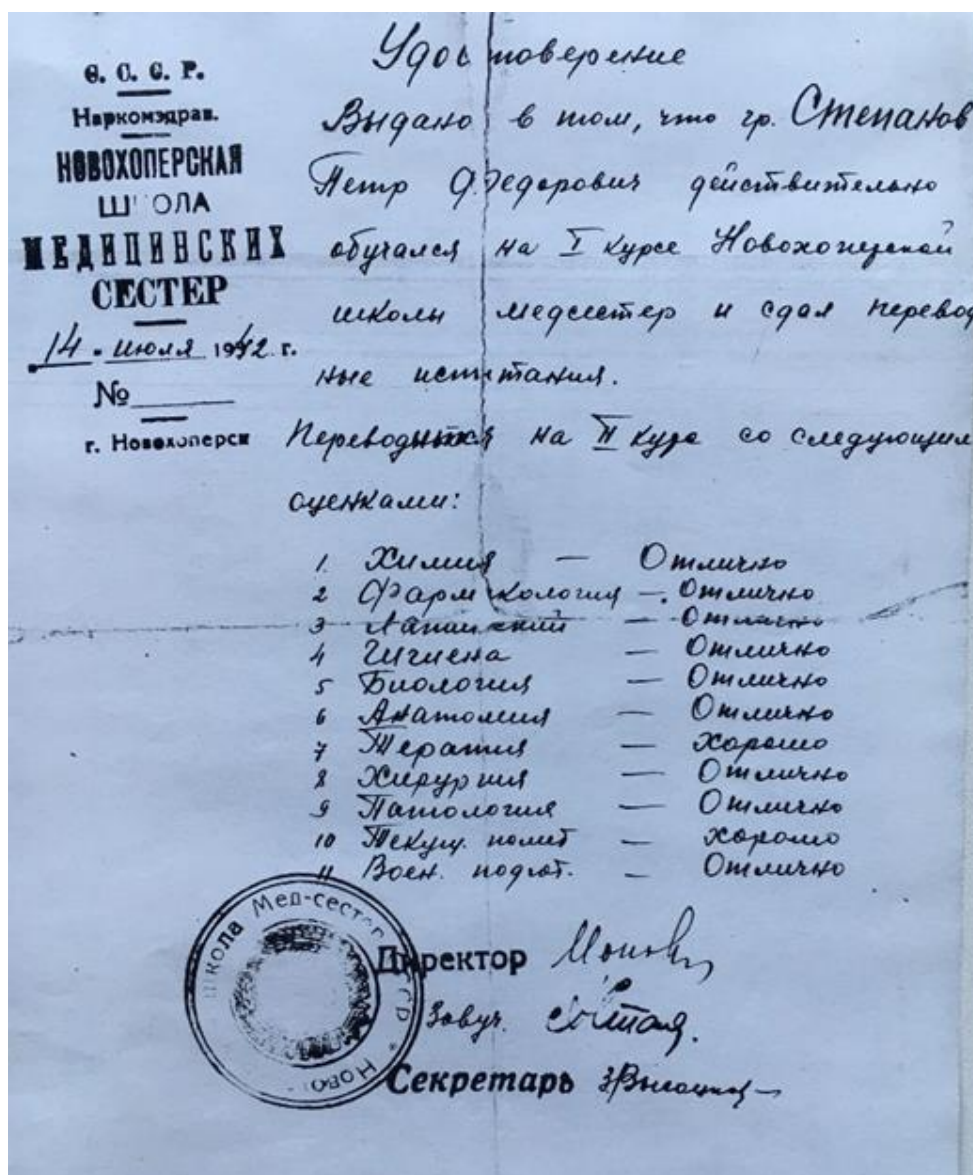 С. С. С. Р.
Наркомздрав.
НОВОХОПЕРСКАЯ
Ш ОЛА
МЕДИЦИНСКИХ
СЕСТЕР
14 - июля 1942 г.
№
г. Новохоперск
Удостоверение
Выдано в том, что гр. Степанов
Петр Федорович действительно
обучался на I курсе Новохоперской
школы медсестер и сдал перевод
ные испытания.
Переводится на II курс со следующим
оценками:
1. Химия — Отлично
2 Фармакология — Отлично
3 Латинский — Отлично
4 Гигиена — Отлично
5 Биология — Отлично
6 Анатомия — Отлично
7 Терапия — Хорошо
8 Хирургия — Отлично
9 Патология — Отлично
10 Текущ. полит — хорошо
11 Воен. подгот. — Отлично
Школа Мед-сестер
Директор
Завуч.
Секретарь